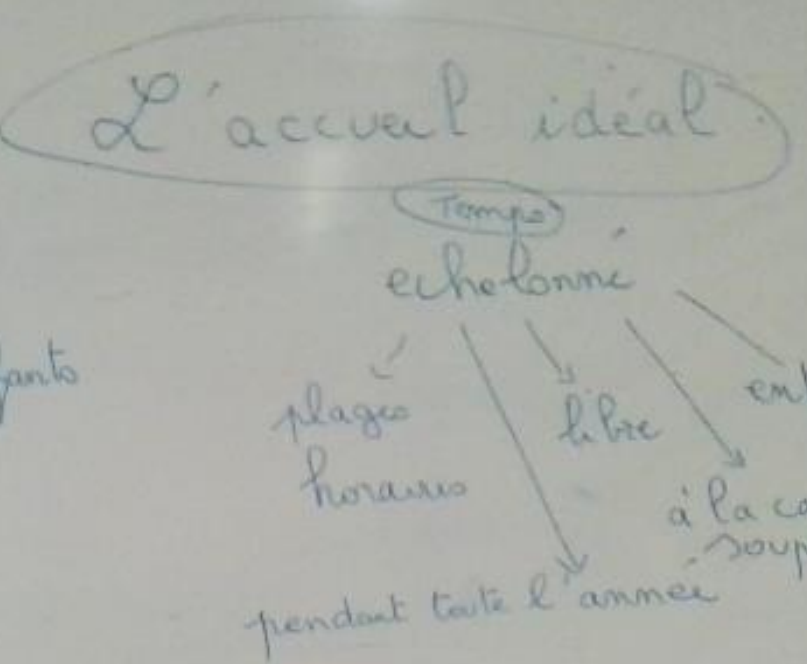 L'accueil idéal
Temps
echelonné
plages
horaires
libre
à la
pendant toute l'année